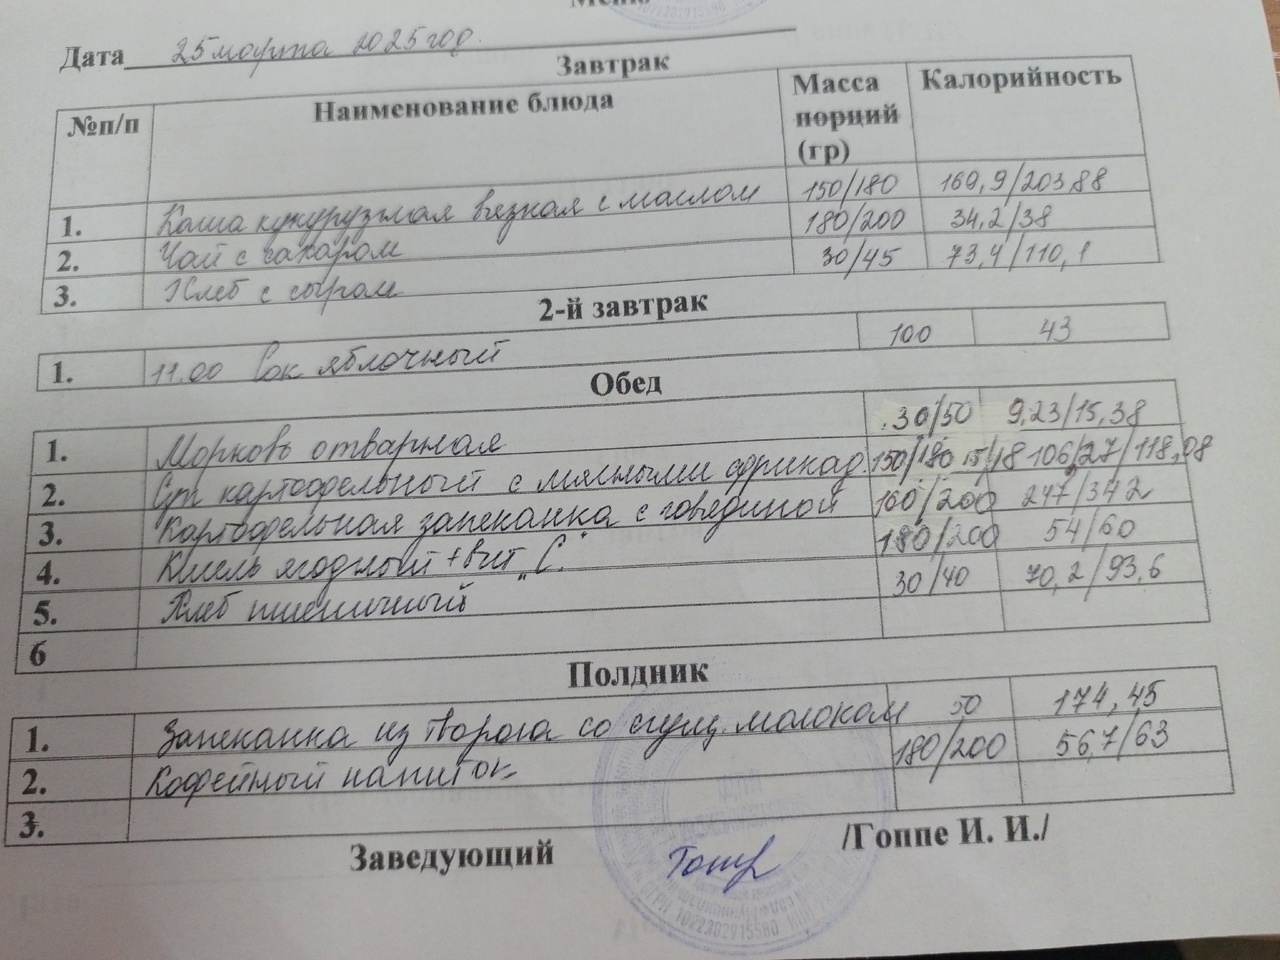 Меню
Дата 25 марта 2025 год.
Завтрак
№п/п Наименование блюда Масса порций (гр) Калорийность
1. Каша кукурузная вязкая с маслом 150/180 169,9/203,88
2. Чай с сахаром 180/200 34,2/38
3. Хлеб с сыром 30/45 73,4/110,1
2-й завтрак
1. 11.00 Сок яблочный 100 43
Обед
1. Морковь отварная 30/50 9,23/15,38
2. Суп картофельный с мясными фрикад. 150/180 15/18 106,27/118,08
3. Картофельная запеканка с говядиной 160/200 247/342
4. Кисель ягодный + вит „С" 180/200 54/60
5. Хлеб пшеничный 30/40 70,2/93,6
6
Полдник
1. Запеканка из творога со сгущ. молоком 50 174,45
2. Кофейный напиток 180/200 56,7/63
3.
Заведующий /Гоппе И. И./
1022302915580